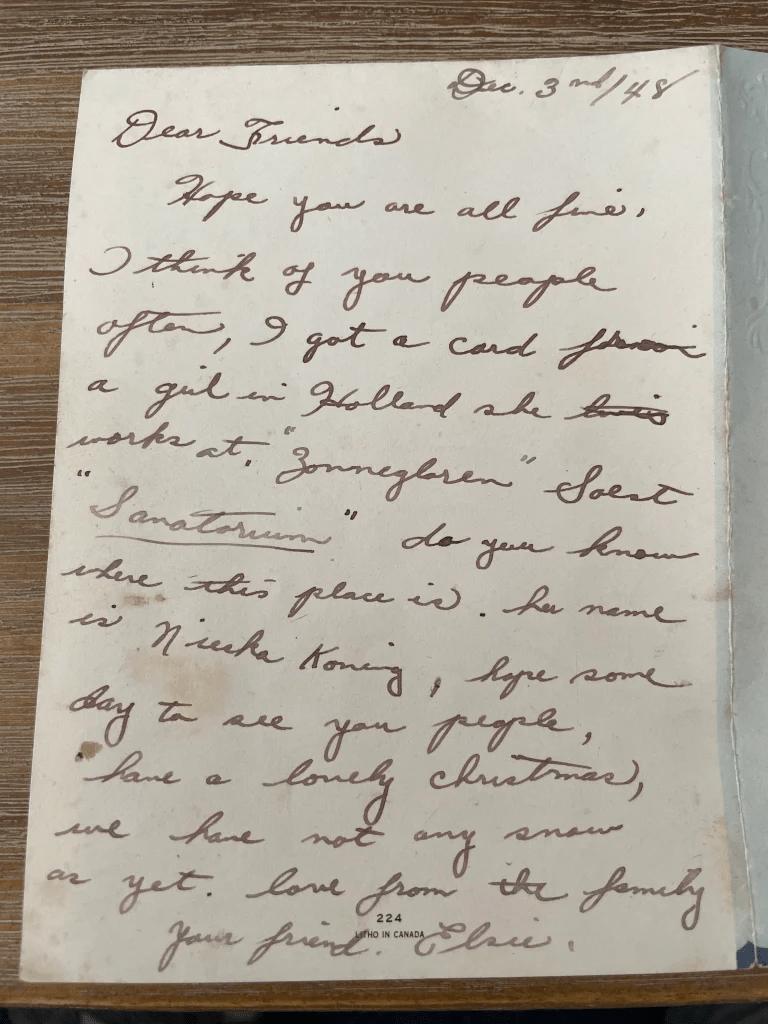 Dec. 3nd/48
Dear Friends
Hope you are all fine.
I think of you people
often, I got a card from
a girl in Holland she
works at. "Zonnegloren" Soest
"Sanatorium" do you know
where this place is. her name
is Nieska Koning, hope some
day to see you people,
have a lovely christmas,
we have not any snow
as yet. love from the family
224
LITHO IN CANADA
Your friend. Elsie.